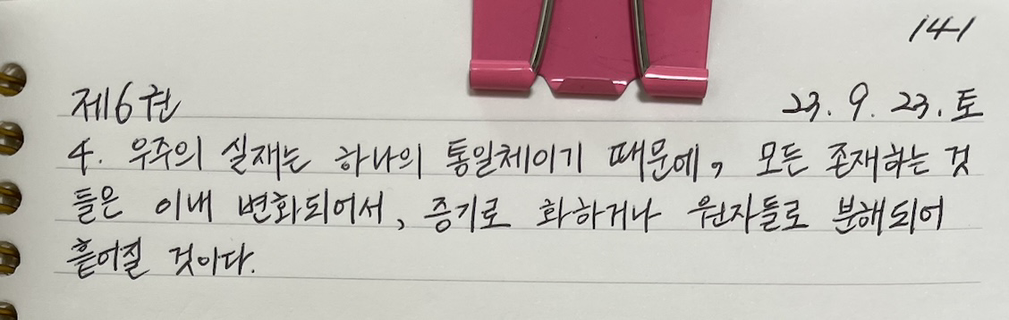 141
제6권 23. 9. 23. 토
4. 우주의 실재는 하나의 통일체이기 때문에, 모든 존재하는 것
들은 이내 변화되어서, 증기로 화하거나 원자들로 분해되어
흩어질 것이다.